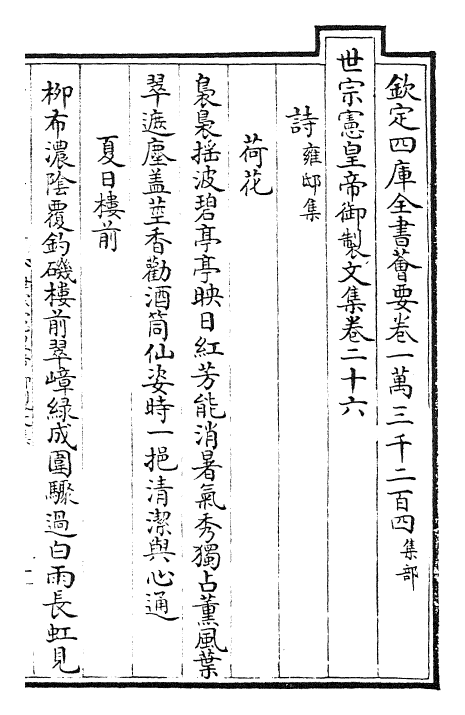 欽定四庫全書薈要卷一萬三千二百四集部
世宗憲皇帝御製文集卷二十六
詩雍邸集
荷花
裊裊揺波碧亭亭映日紅芳能消暑氣秀獨占薰風葉
翠遮塵盖莖香勸酒筒仙姿時一挹清潔與心通
夏日樓前
柳布濃陰覆釣磯樓前翠嶂緑成圍驟過白雨長虹見